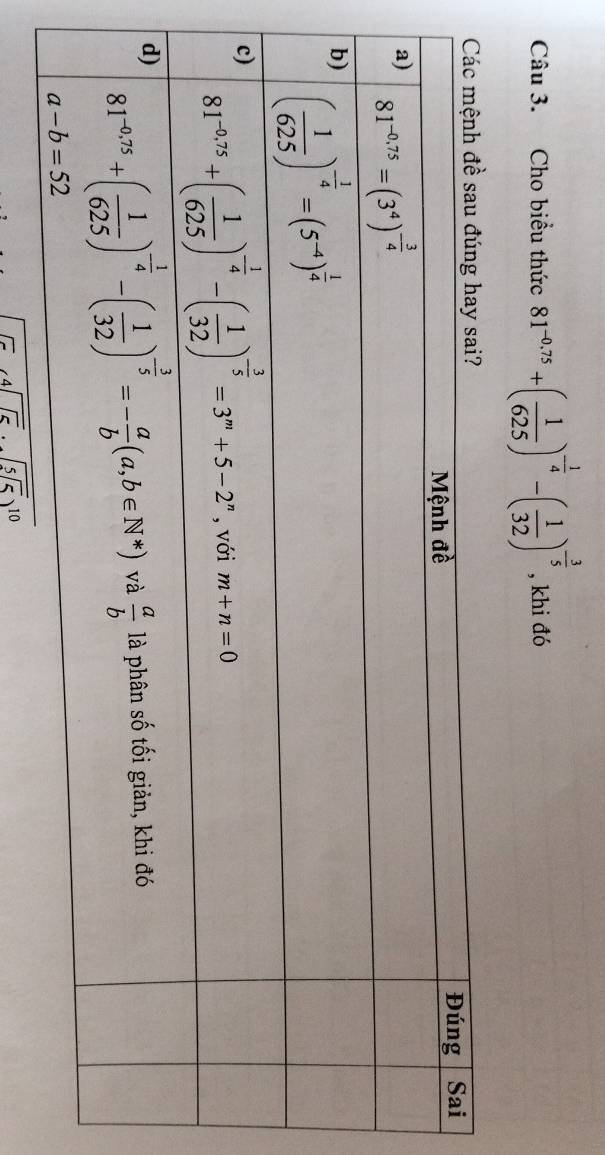 Câu 3. Cho biểu thức 81^{-0,75} + (1/625)^{-1/4} - (1/32)^{-3/5}, khi đó
Các mệnh đề sau đúng hay sai?
Mệnh đề Đúng Sai
a) 81^{-0,75} = (3^4)^{-3/4}
b) (1/625)^{-1/4} = (5^{-4})^{1/4}
c) 81^{-0,75} + (1/625)^{-1/4} - (1/32)^{-3/5} = 3^m + 5 - 2^n, với m + n = 0
d) 81^{-0,75} + (1/625)^{-1/4} - (1/32)^{-3/5} = -a/b (a, b ∈ ℕ*) và a/b là phân số tối giản, khi đó
a - b = 52